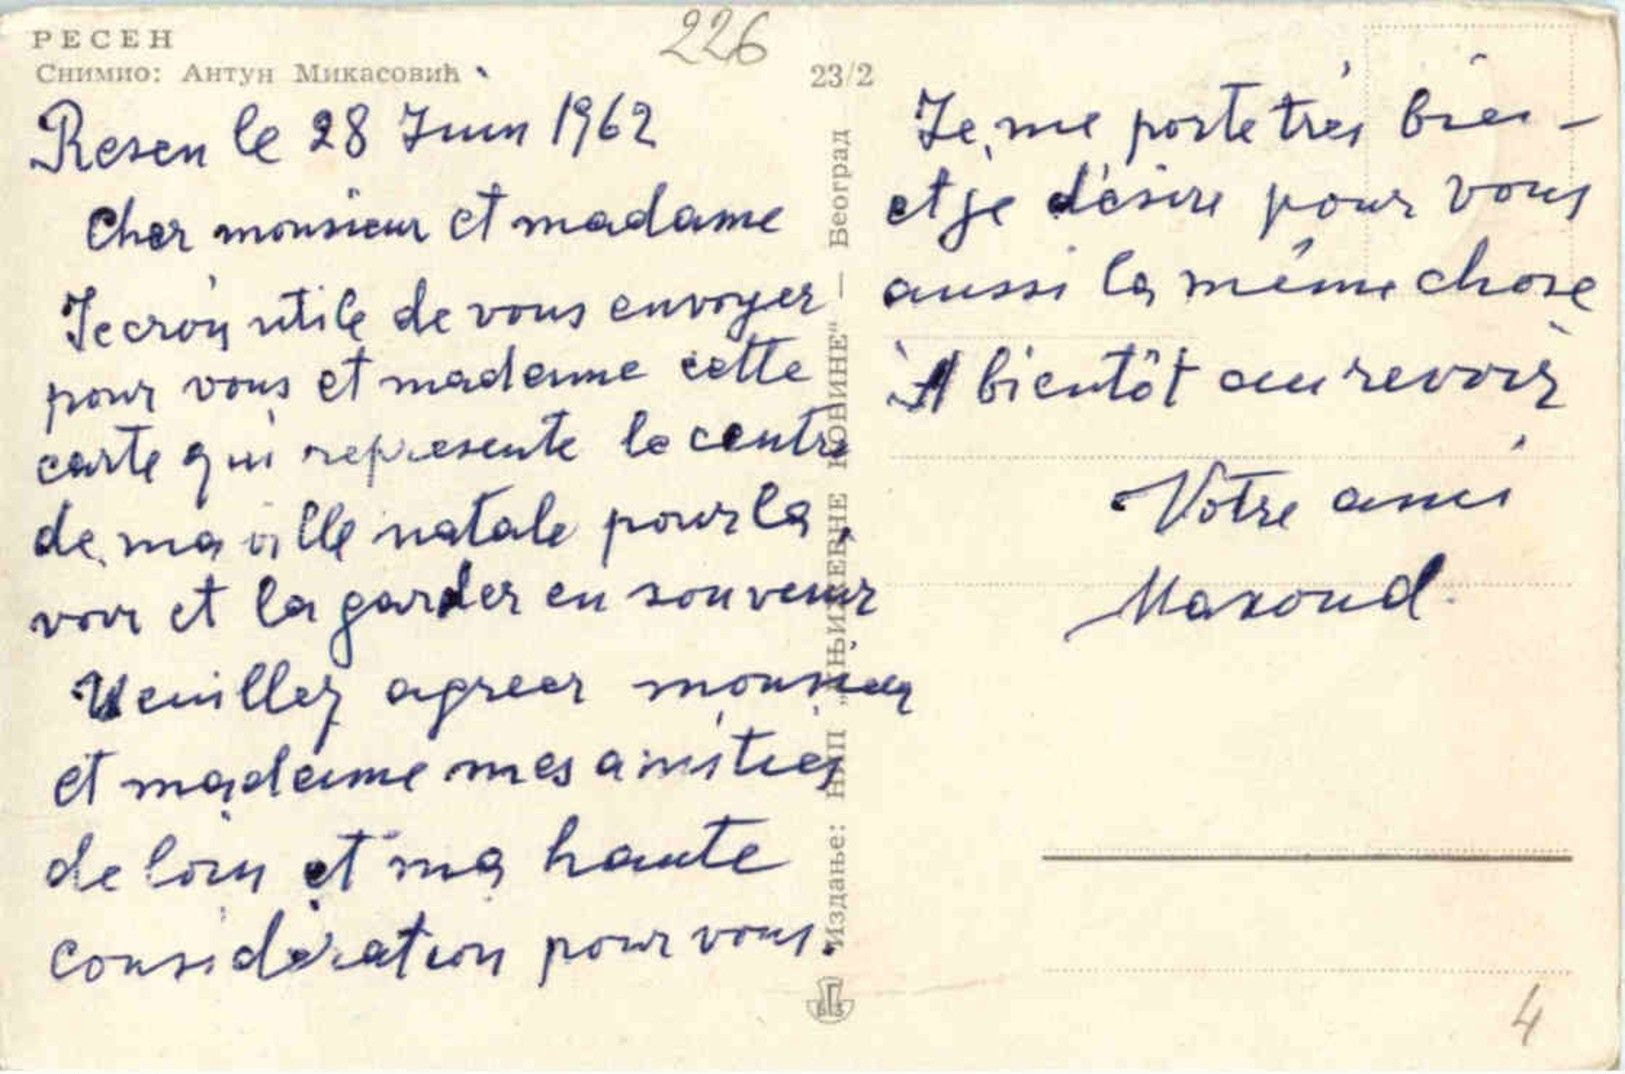 РЕСЕН
Снимио: Антун Микасовић
226
23/2
Resen le 28 Juin 1962
Cher monsieur et madame
Je crois utile de vous envoyer
pour vous et madame cette
carte qui represente le centre
de ma ville natale pour la
voir et la garder en souvenir
Veuillez agreer monsieur
et madame mes amitiés
de loin et ma haute
considération pour vous.
Издање: НИП „КЊИЖЕВНЕ НОВИНЕ“ — Београд
Je me porte très bien —
et je désire pour vous
aussi la même chose
A bientôt au revoir
Votre ami
4